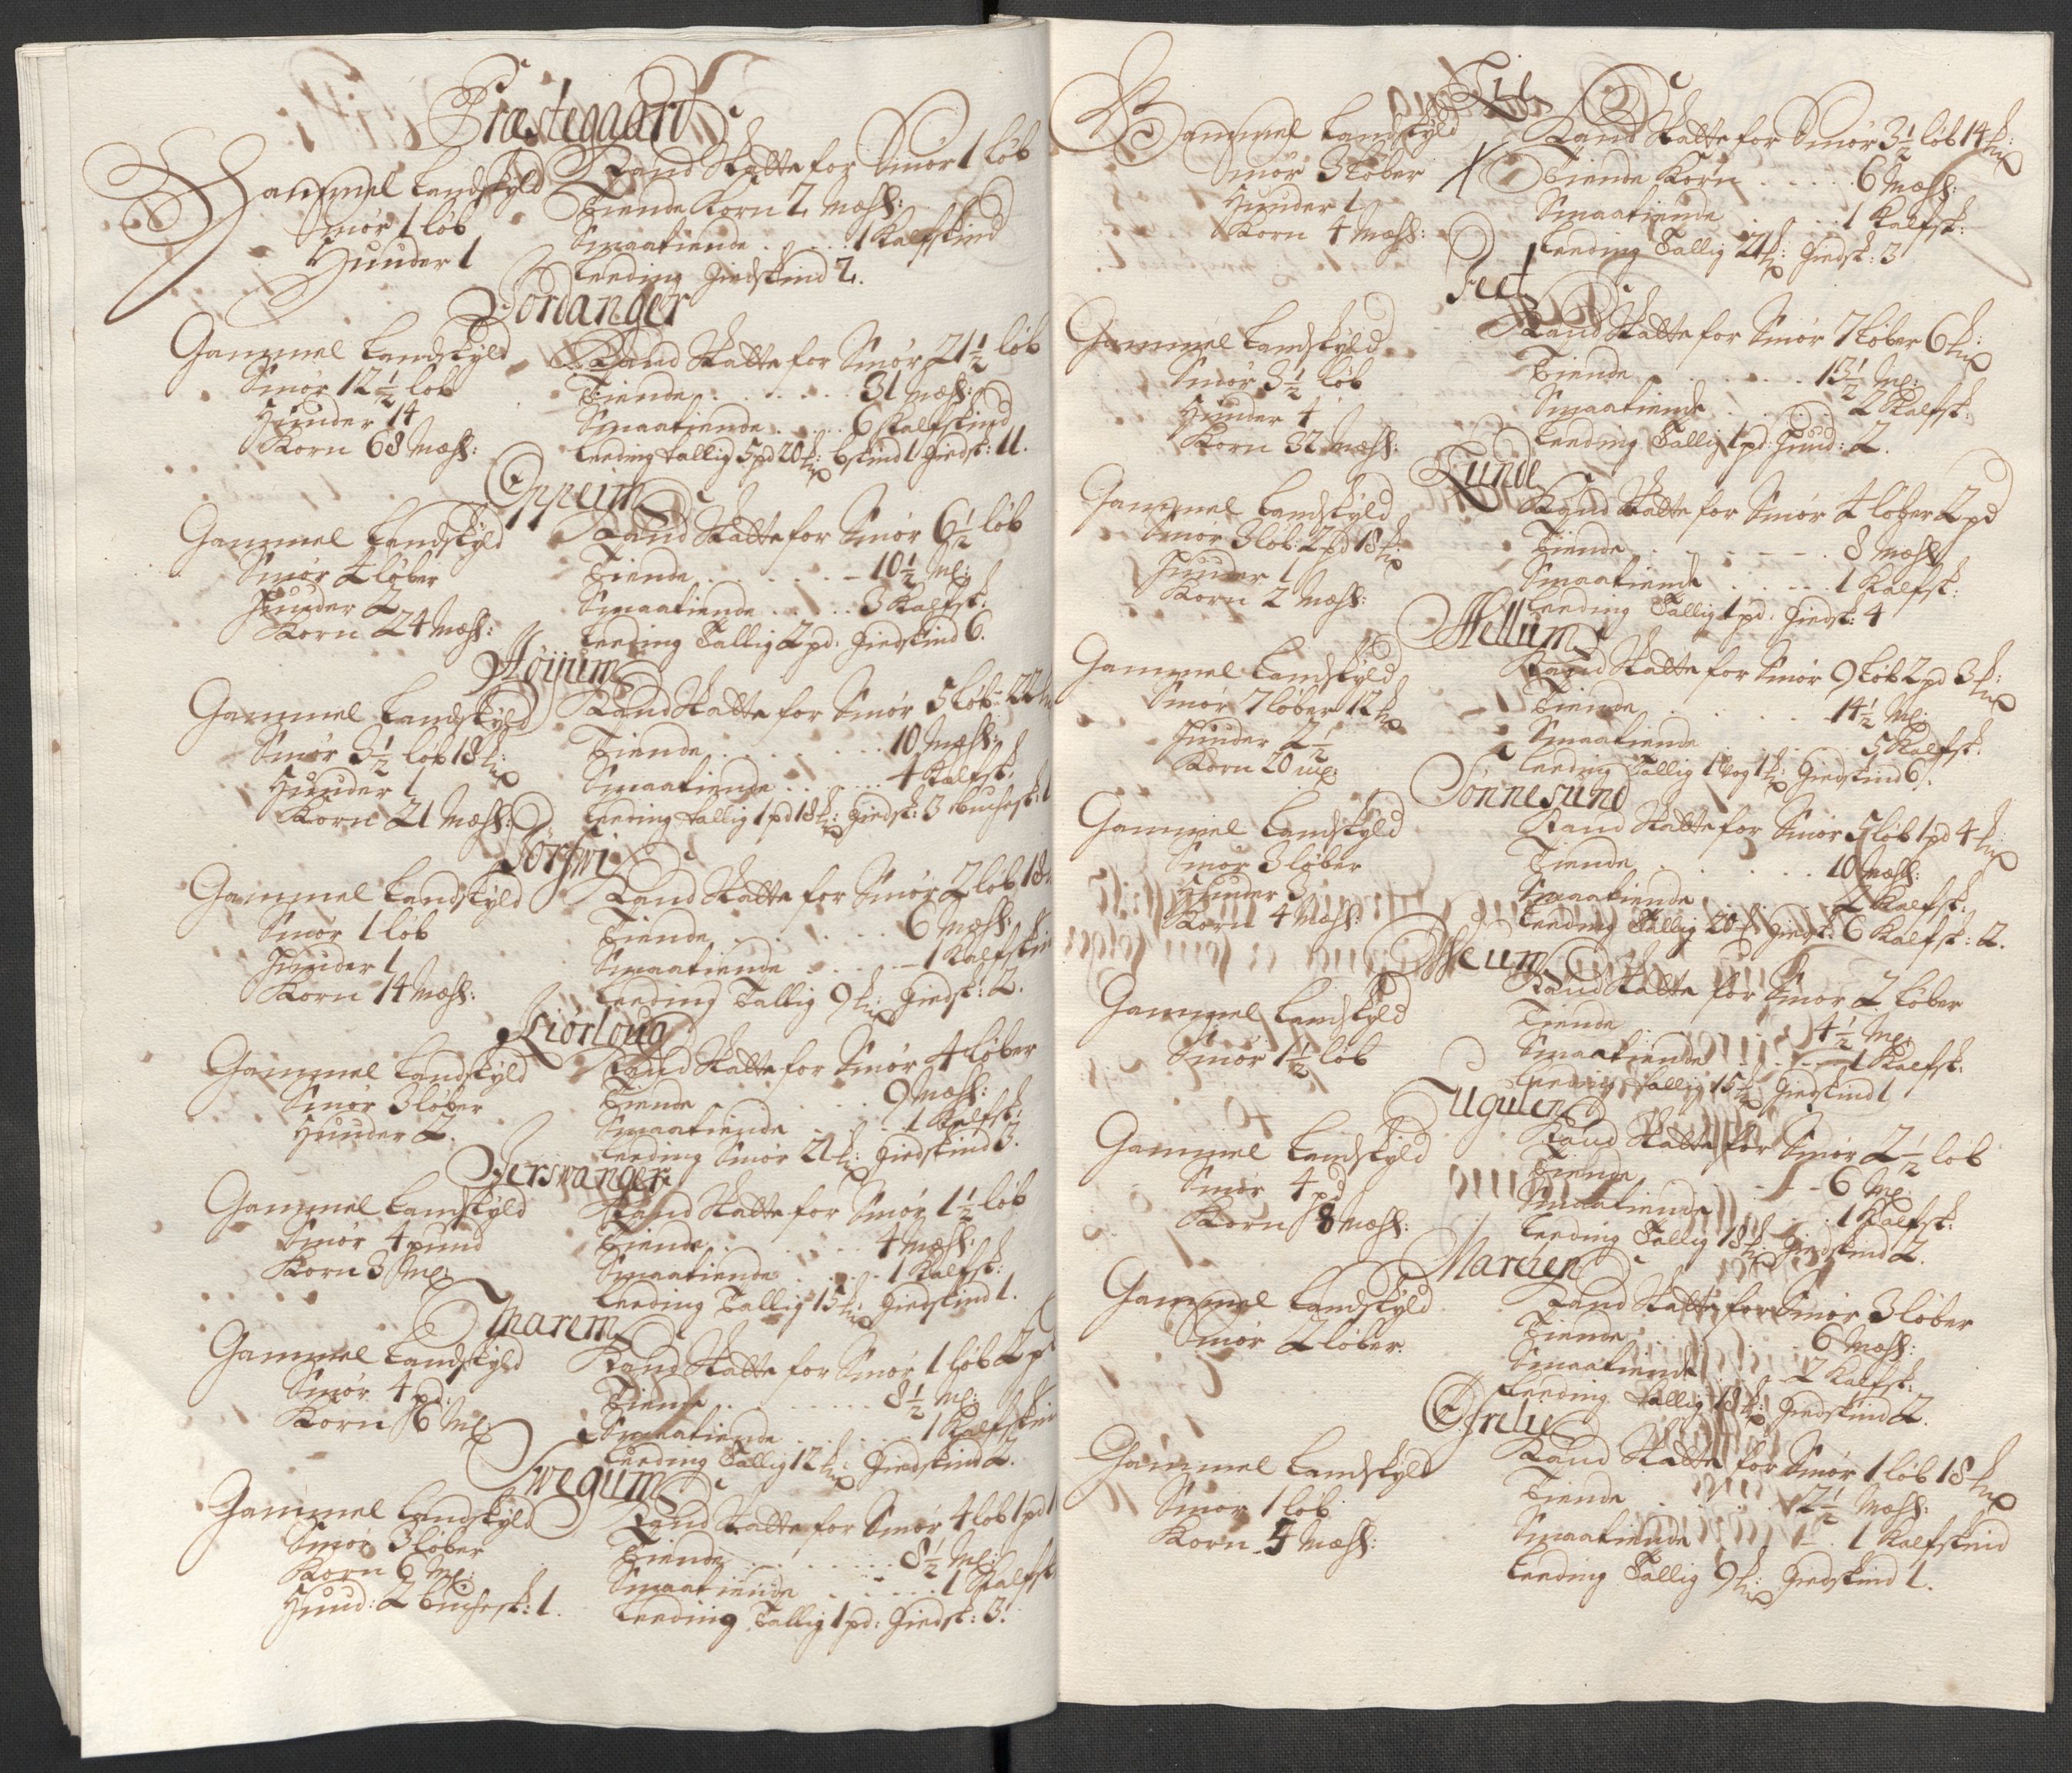 Præstegaard
Gammel Landskyld
Smør 1 løb
Huuder 1
Rand Skatte for Smør 1 løb
Tiende Korn 2 mæhl:
Smaatiende . . . . 1 Kalfskind
Leeding Giedskind 2.
Jordanger
Gammel Landskyld
Smør 12½ løb
Huuder 14
Korn 68 Mæhl:
Rand Skatte for Smør 21½ løb
Tiende . . . . . . 31 mæhl:
Smaatiende . . . . 6 Kalfskind
Leeding tallig 5 pd 20 bskind 1 Giedsk: 11.
Oppeim
Gammel Landskyld
Smør 4 løber
Huuder 2
Korn 24 Mæhl:
Rand Skatte for Smør 6½ løb
Tiende . . . . . . 10½ Ml:
Smaatiende . . . . 3 Kalfsk:
Leeding Tallig 2 pd: Giedskind 6.
Høyum
Gammel Landskyld
Smør 3½ løb 18
Huuder 1
Korn 21 Mæhl:
Rand Skatte for Smør 5 løb 22
Tiende . . . . . . 10 Mæhl:
Smaatiende . . . . 4 Kalfsk:
Leeding tallig 1 pd 18 Giedsk: 3 buchesk: 1
Gammel Landskyld
Smør 1 løb
Huuder 1
Korn 14 Mæhl:
Rand Skatte for Smør 2 løb 18
Tiende . . . . . . 6 Mæhl:
Smaatiende . . . . 1 Kalfskin
Leeding Tallig 9 Giedsk: 2.
Kiørloug
Gammel Landskyld
Smør 3 løber
Huuder 2.
Rand Skatte for Smør 4 løber
Tiende . . . . . . 9 Mæhl:
Smaatiende . . . . 1 Kalfsk:
Leeding Smør 21 Giedskind 3.
Jerswanger
Gammel Landskyld
Smør 4 pund
Korn 3 Ml:
Rand Skatte for Smør 1½ løb
Tiende . . . . . . 4 Mæhl:
Smaatiende . . . . 1 Kalfsk:
Leeding Tallig 15 Giedskind 1.
Gammel Landskyld
Smør 4 pd:
Korn 6 Ml:
Rand Skatte for Smør 1 løb 2 pd
Tiende . . . . . . 8½ Ml:
Smaatiende . . . . 1 Kalfskin
Leeding Tallig 12 Giedskind 2.
Swegum
Gammel Landskyld
Smør 3 løber
Korn 6 Ml:
Huud: 2 buchesk: 1.
Rand Skatte for Smør 4 løb 1 pd 1
Tiende . . . . . . 8½ Ml:
Smaatiende . . . . 1 Kalfsk
Leeding Tallig 1 pd: Giedsk: 3.
Gammel Landskyld
Smør 3 løber
Huuder 1
Korn 4 Mæhl:
Rand Skatte for Smør 3½ løb 14
X Tiende Korn . . . . 6 Mæhl:
Smaatiende . . . . 1 Kalfsk:
Leeding Tallig 21 Giedsk: 3
Feet
Gammel Landskyld
Smør 3½ løb
Huuder 4
Korn 32 Mæhl:
Rand Skatte for Smør 7 løber 6
Tiende . . . . . . 13½ Ml:
Smaatiende . . . . 2 Kalfsk:
Leeding Tallig 1 pd: Huud: 2.
Lunde
Gammel Landskyld
Smør 3 løb: 2 pd 18
Huuder 1
Korn 2 Mæhl:
Rand Skatte for Smør 4 løber 2 pd
Tiende . . . . . . 8 Mæhl
Smaatiende . . . . 1 Kalfsk:
Leeding Tallig 1 pd: Giedsk: 4
Mellum
Gammel Landskyld
Smør 7 løber 12
Huuder 2½
Korn 20 Ml:
Rand Skatte for Smør 9 løb 2 pd 3
Tiende . . . . . . 14½ Ml:
Smaatiende . . . . 5 Kalfsk:
Leeding Tallig 1 Vog 1 Giedskind 6.
Sønnesund
Gammel Landskyld
Smør 3 løber
Huuder 3
Korn 4 Mæhl:
Rand Skatte for Smør 5 løb 1 pd 4
Tiende . . . . . . 10 Mæhl:
Smaatiende . . . . 2 Kalfsk:
Leeding Tallig 20 Giedsk: 6 Kalfsk: 2.
Gammel Landskyld
Smør 1½ løb
Rand Skatte for Smør 2 løber
Tiende 4½ Ml:
Smaatiende . . . . 1 Kalfsk:
Leeding tallig 15 Giedskind 1
Ugulen
Gammel Landskyld
Smør 4 pd
Korn 8 Mæhl:
Rand Skatte for Smør 2½ løb
Tiende . . . . 6 Ml
Smaatiende . . . . 1 Kalfsk:
Leeding Tallig 18 Giedskind 2.
Gammel Landskyld
Smør 2 løber.
Rand Skatte for Smør 3 løber
Tiende . . . . 6 Mæhl:
Smaatiende . . . . 2 Kalfsk:
Leeding tallig 18 Giedskind 2.
Gammel Landskyld
Smør 1 løb
Korn 4 Mæhl:
Rand Skatte for Smør 1 løb 18
Tiende . . . . 2½ Mæhl:
Smaatiende . . . 1 Kalfskind
Leeding Tallig 9 Giedskind 1.